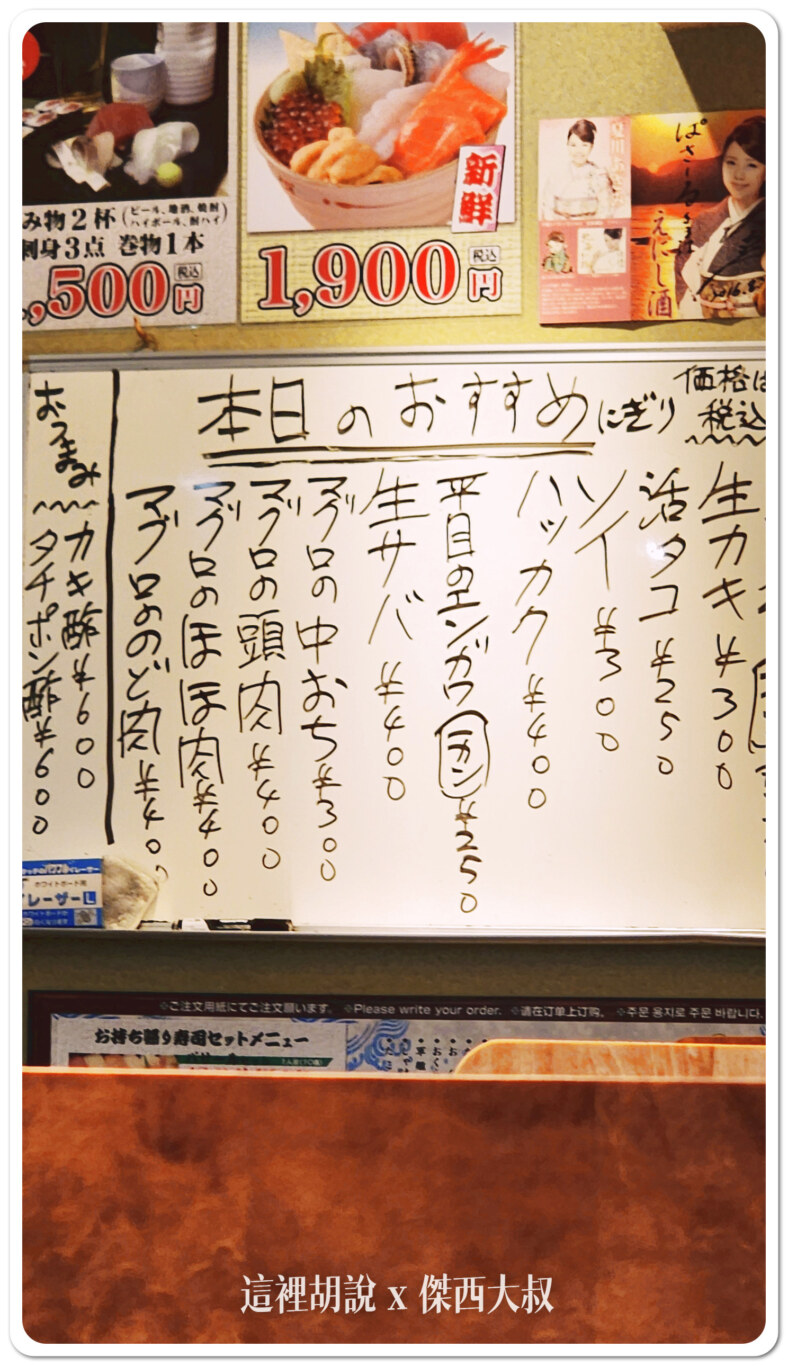 み物2杯(ビール、地酒、焼酎
ハイボール、酎ハイ)
刺身3点 巻物1本
,500円
税込
新鮮
1,900円
税込
ぱさーる
えにし酒
本日のおすすめにぎり
価格は
税込
生カキ ¥300
活タコ ¥250
ソイ ¥300
ハッカク ¥400
平目のエンガワ カン ¥250
生サバ ¥400
マグロの中おち ¥300
マグロの頭肉 ¥400
マグロのほほ肉 ¥400
マグロののど肉 ¥400
おつまみ
カキ酢 ¥600
タチポン酢 ¥600
ホワイトボード用
イレーザーL
※ご注文用紙にてご注文願います。 ※Please write your order. ※请在订单上订购。 ※주문 용지로 주문 바랍니다.
お持ち帰り寿司セットメニュー
這裡胡說 x 傑西大叔